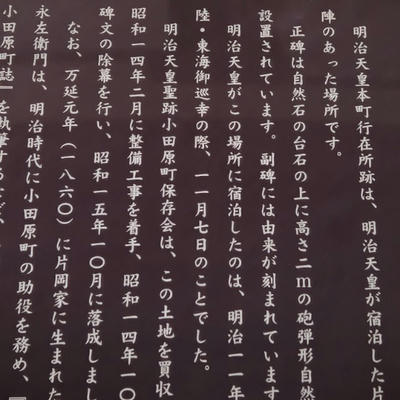 明治天皇本町行在所跡は、明治天皇が宿泊した片
陣のあった場所です。
正碑は自然石の台石の上に高さ二mの砲弾形自然
設置されています。副碑には由来が刻まれています
明治天皇がこの場所に宿泊したのは、明治一一年
陸・東海御巡幸の際、一一月七日のことでした。
明治天皇聖跡小田原町保存会は、この土地を買収
昭和一四年二月に整備工事を着手、昭和一四年一〇
碑文の除幕を行い、昭和一五年一〇月に落成しまし
なお、万延元年（一八六〇）に片岡家に生まれた
永左衛門は、明治時代に小田原町の助役を務め、
小田原町誌』を執筆するなど、